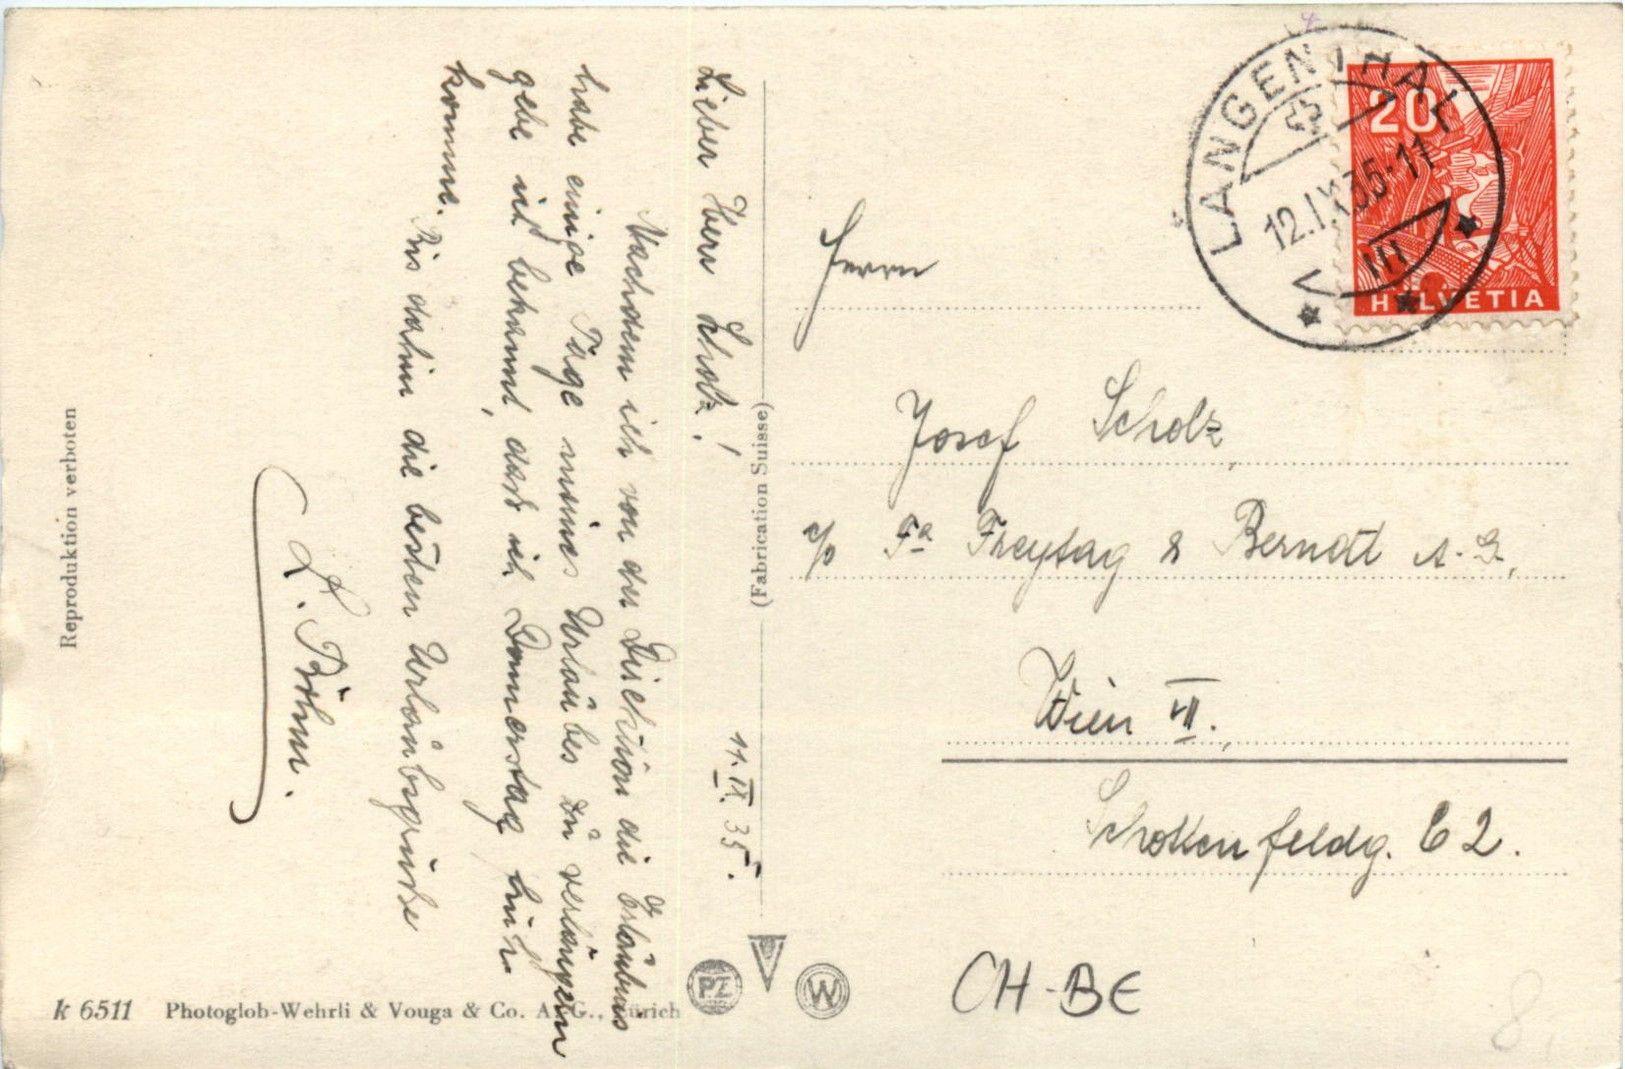 Lieber Herr Scholz!
11.IX.35.
Nachdem ich von der Direktion die Erlaubnis
habe einige Tage meines Urlaubes zu verlängern
gebe ich bekannt, daß ich Donnerstag früh
komme.
Bis dahin die besten Urlaubsgrüße
L. Böhm.
Reproduktion verboten
k 6511 Photoglob-Wehrli & Vouga & Co. A. G., Zürich
(Fabrication Suisse)
PZ
W
LANGENTHAL
12.IX.35-11
III
20
HELVETIA
Herrn
Josef Scholz
c/o Fa Freytag & Berndt A. G.,
Wien VII.
Schottenfeldg. 62.
CH-BE
8